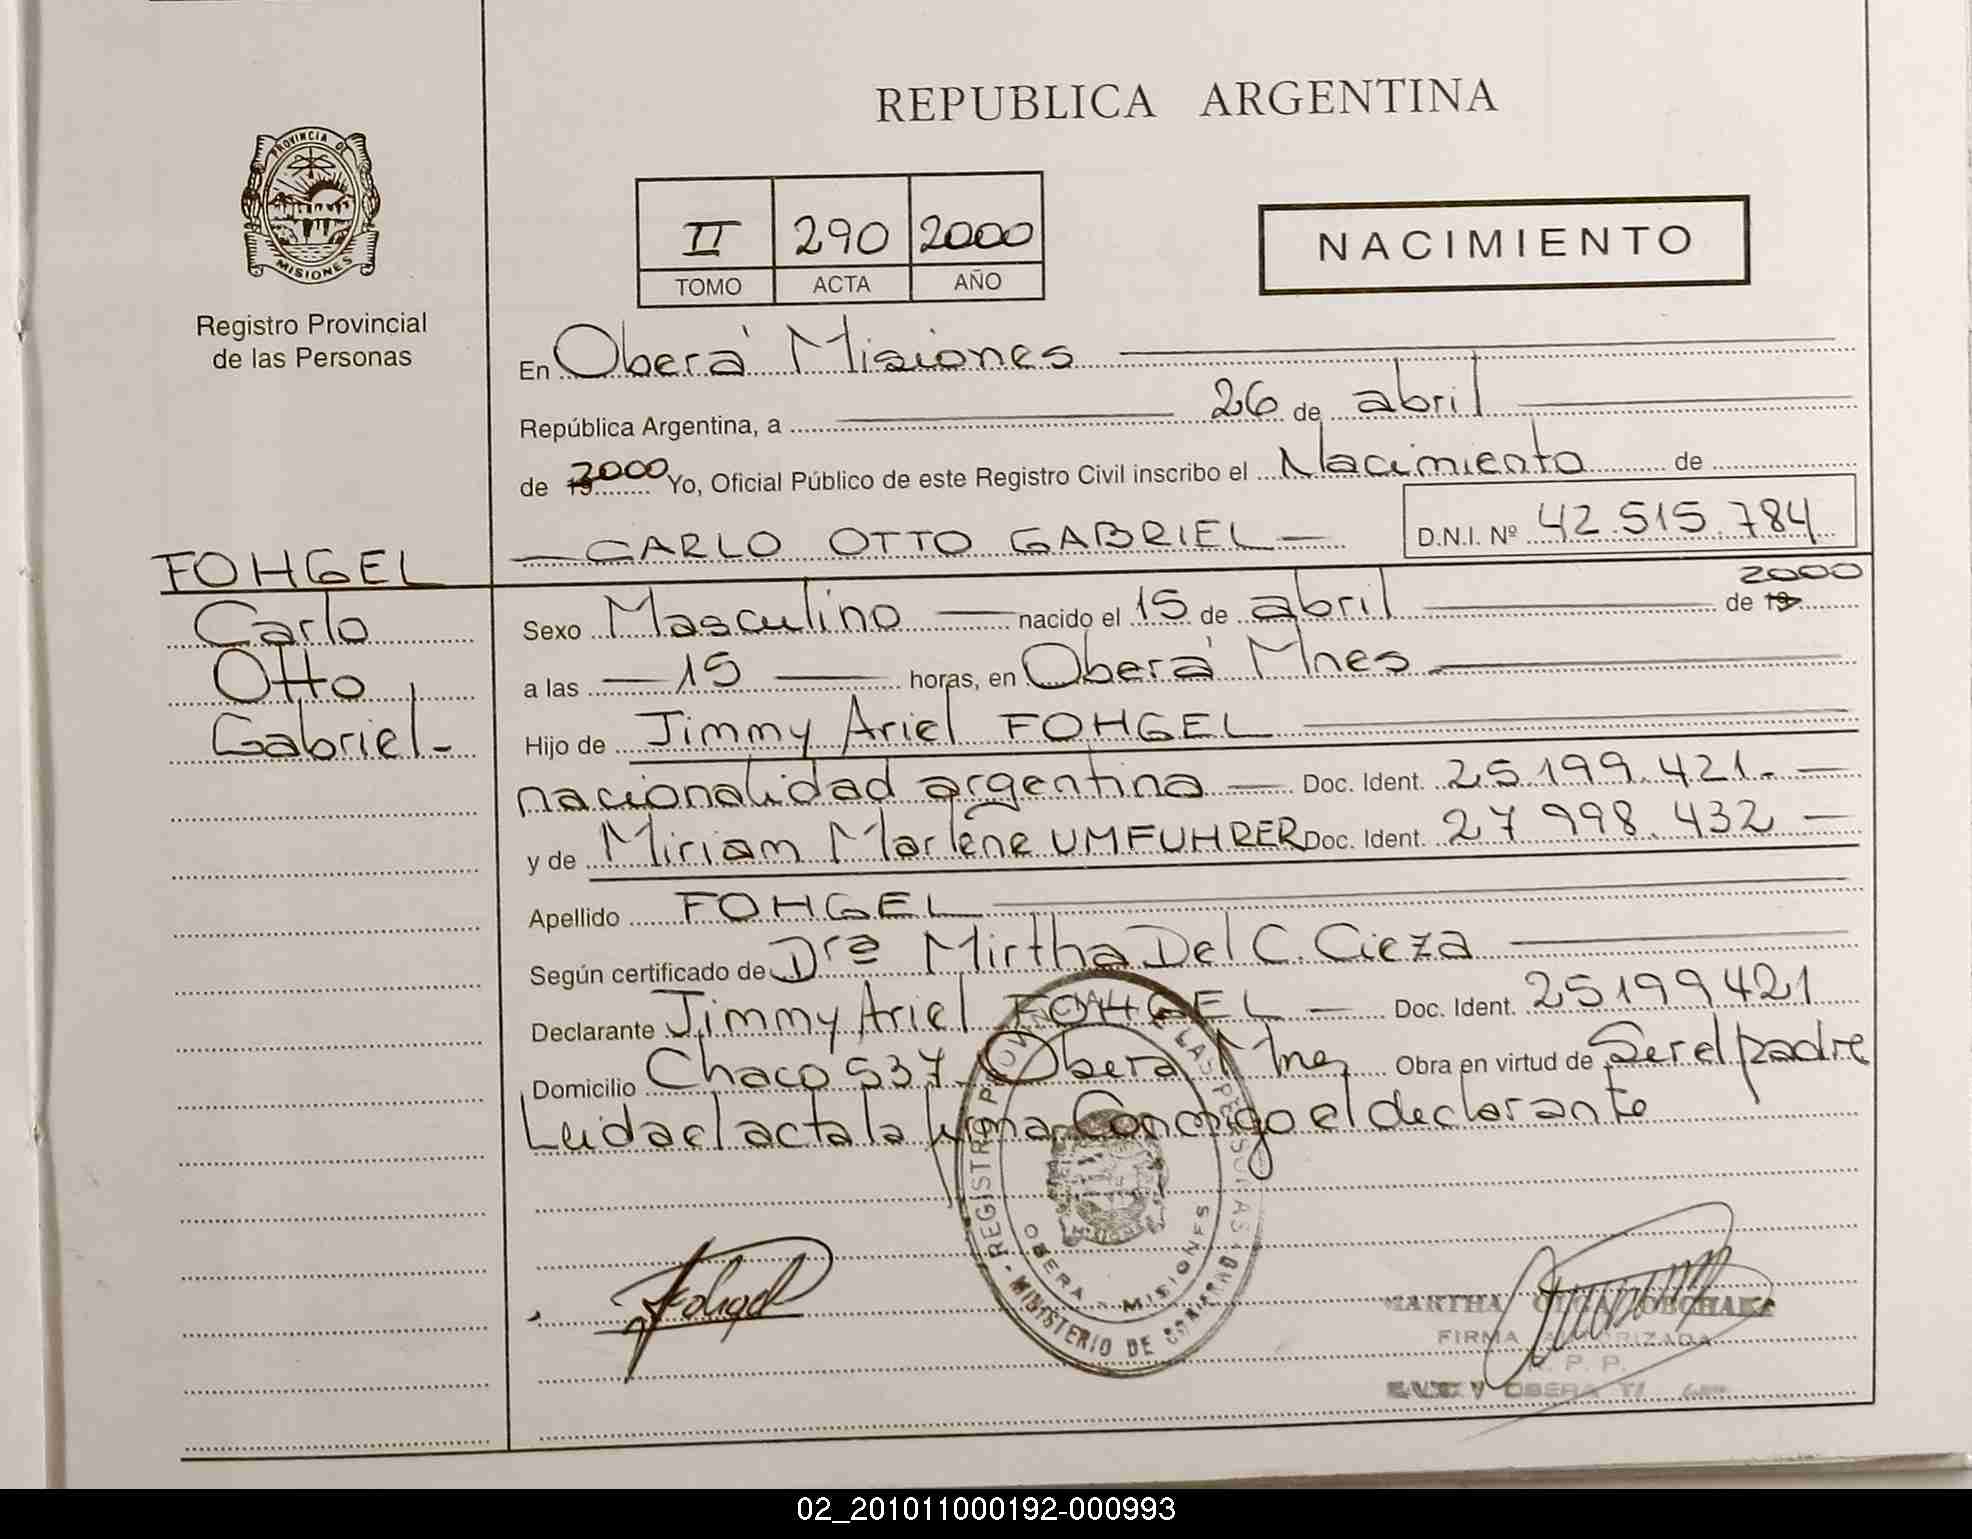 PROVINCIA DE
MISIONES
Registro Provincial
de las Personas
REPUBLICA ARGENTINA
II 290 2000
TOMO ACTA AÑO
NACIMIENTO
En Oberá Misiones
República Argentina, a 26 de abril
de 19 2000 Yo, Oficial Público de este Registro Civil inscribo el Nacimiento de
CARLO OTTO GABRIEL D.N.I. Nº 42.515.784
FOHGEL
Carlo
Otto
Gabriel.-
Sexo Masculino nacido el 15 de abril de 19 2000
a las 15 horas, en Oberá Mnes
Hijo de Jimmy Ariel FOHGEL
nacionalidad argentina Doc. Ident. 25.199.421.
y de Miriam Marlene UMFUHRER Doc. Ident. 27 998.432
Apellido FOHGEL
Según certificado de Drª Mirtha Del C. Cieza
Declarante Jimmy Ariel FOHGEL Doc. Ident. 25199421
Domicilio Chaco 537. Oberá Mnes Obra en virtud de Ser el padre
Leida el acta la firma Conmigo el declarante
REGISTRO PROVINCIAL LAS PERSONAS
MINISTERIO DE GOBIERNO
OBERA - MISIONES
Fohgel
MARTHA OLGA
FIRMA AUTORIZADA
R. P. P.
OBERA
02_201011000192-000993